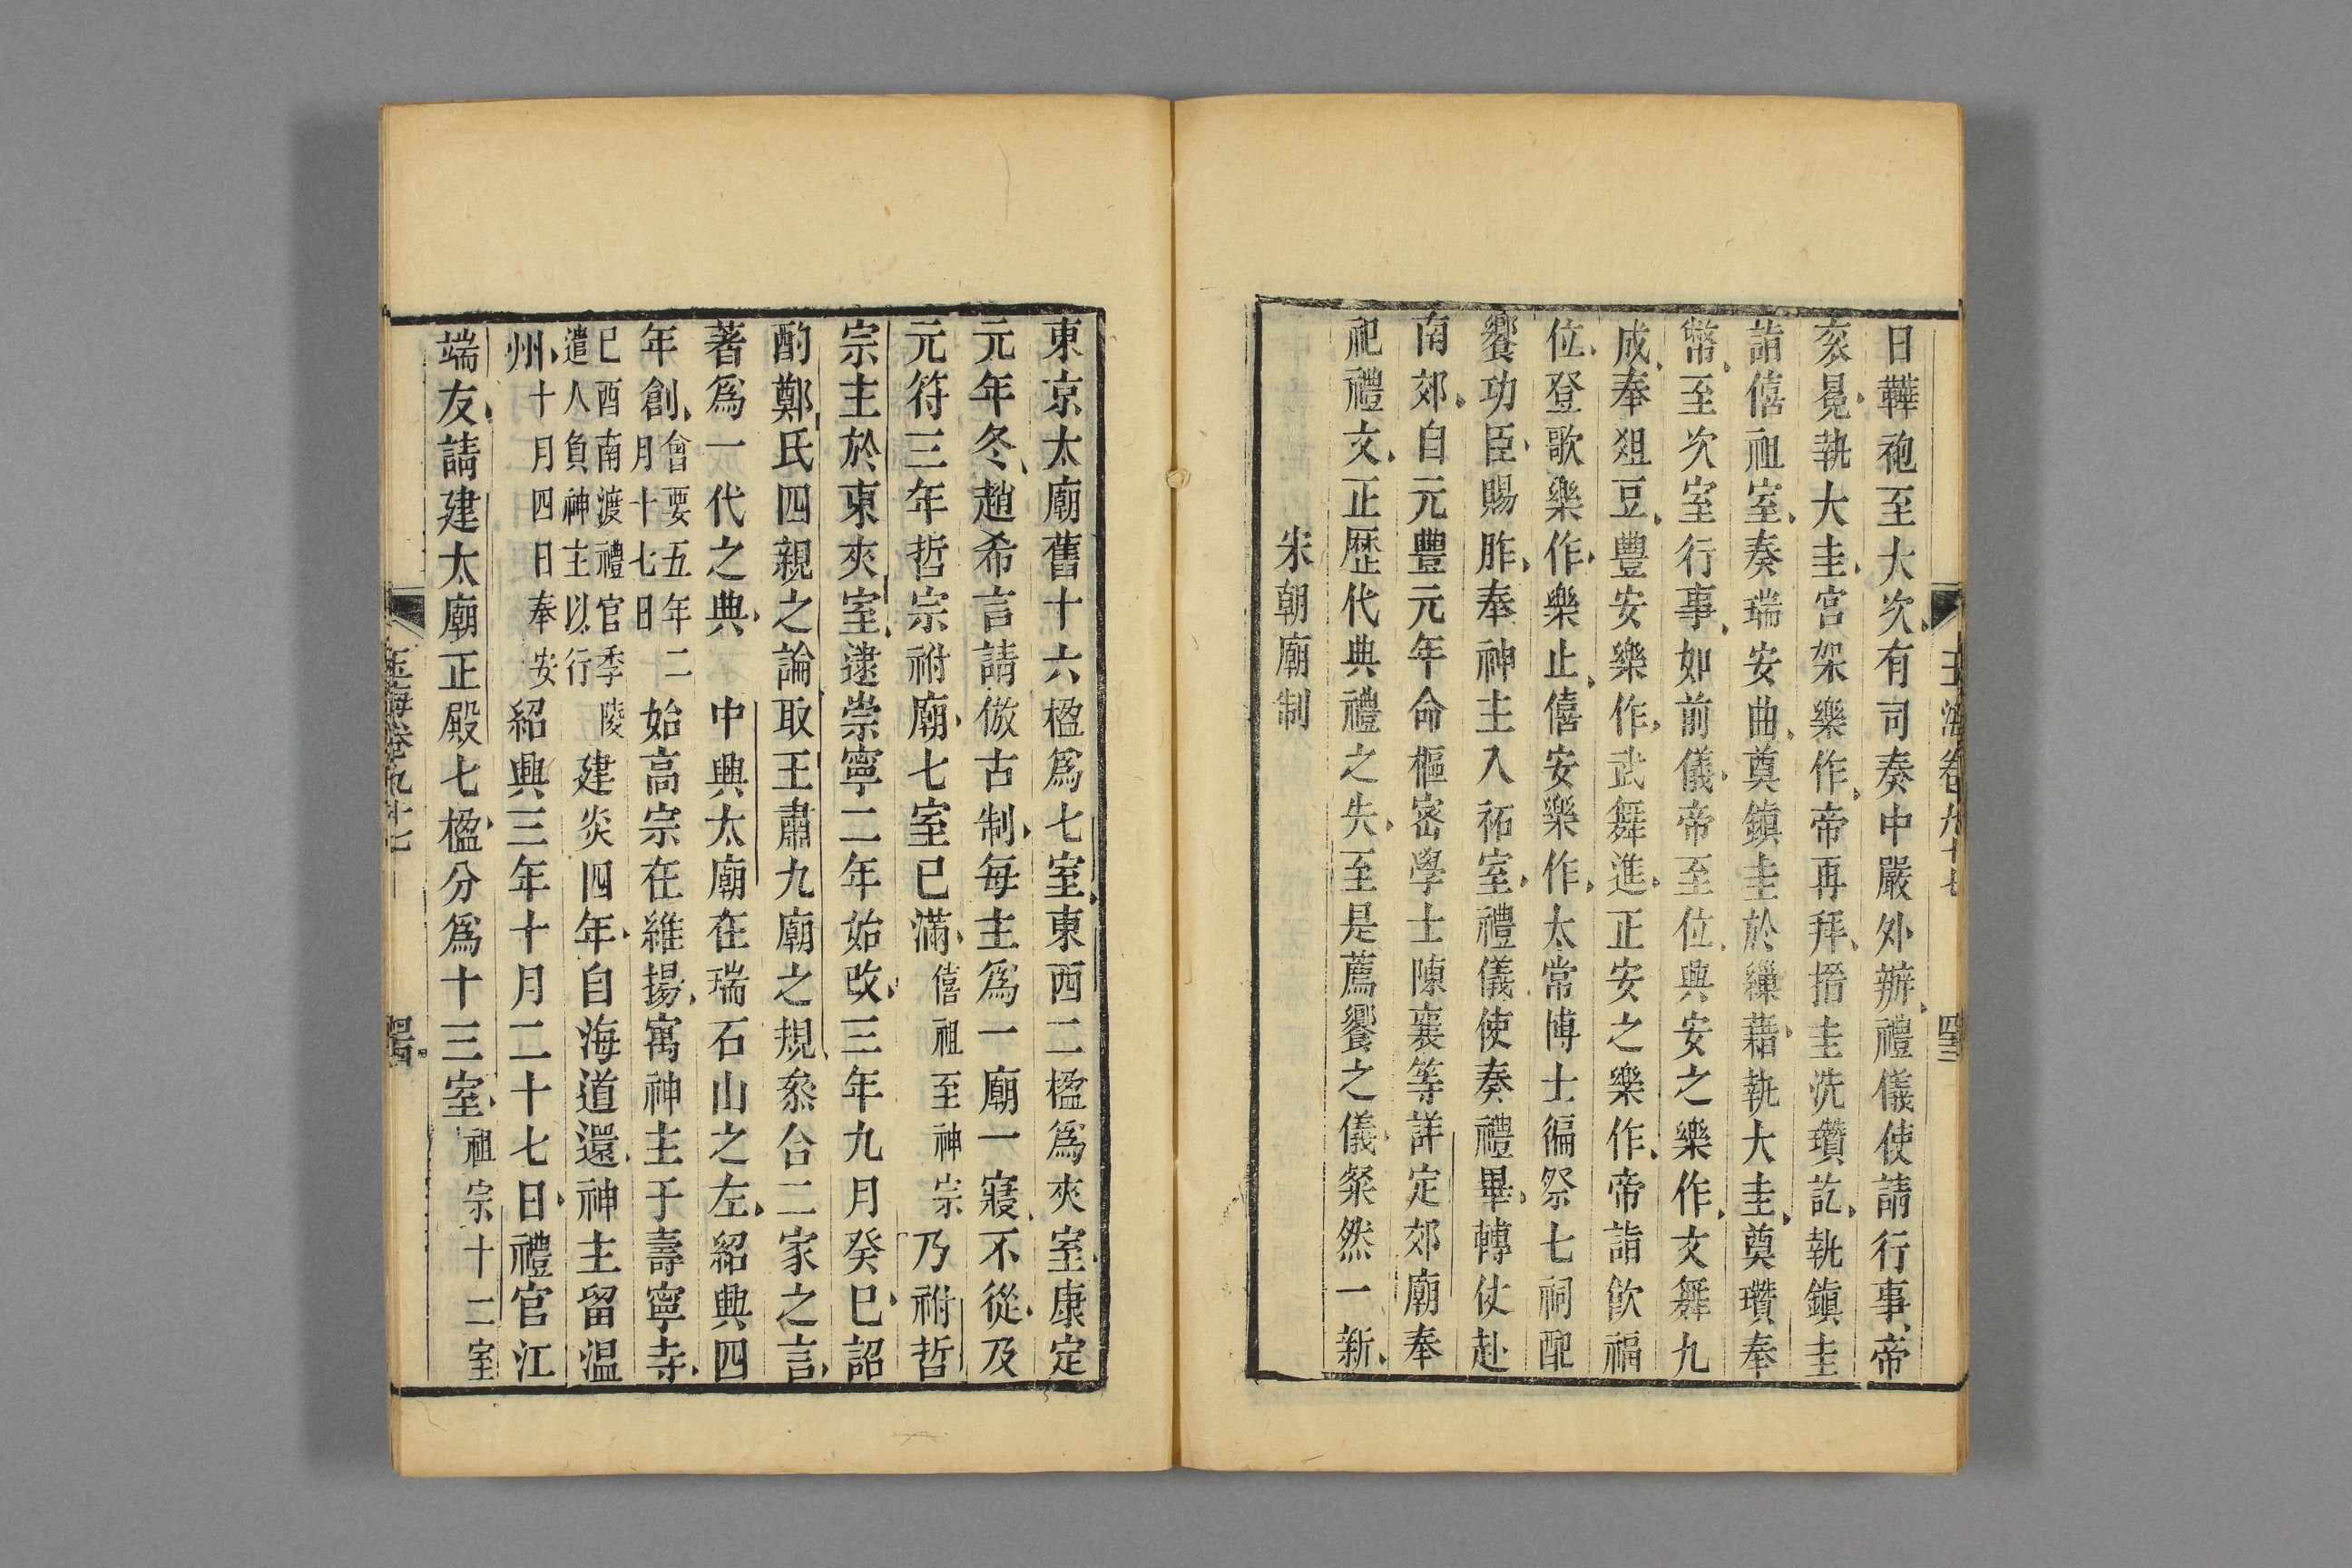 日鞾袍至大次有司奏中嚴外辦禮儀使請行事帝
衮冕執大圭宮架樂作帝再拜搢圭洗瓚訖執鎭圭
詣僖祖室奏瑞安曲奠鎭圭於繅藉執大圭奠瓚奉
幣至次室行事如前儀帝至位興安之樂作文舞九
成奉俎豆豐安樂作武舞進正安之樂作帝詣飮福
位登歌樂作樂止僖安樂作太常博士徧祭七祠配
饗功臣賜胙奉神主入祏室禮儀使奏禮畢轉仗赴
南郊自元豐元年命樞密學士陳襄等詳定郊廟奉
祀禮文正歷代典禮之失至是薦饗之儀粲然一新
宋朝廟制
東京太廟舊十六楹爲七室東西二楹爲夾室康定
元年冬趙希言請倣古制每主爲一廟一寢不從及
元符三年哲宗祔廟七室已滿僖祖至神宗乃祔哲
宗主於東夾室逮崇寧二年始改三年九月癸巳詔
酌鄭氏四親之論取王肅九廟之規叅合二家之言
著爲一代之典 中興太廟在瑞石山之左紹興四
年創會要五年二月十七日始高宗在維揚寓神主于壽寧寺
巳酉南渡禮官季陵遣人負神主以行建炎四年自海道還神主留温
州十月四日奉安紹興三年十月二十七日禮官江
端友請建太廟正殿七楹分爲十三室祖宗十二室